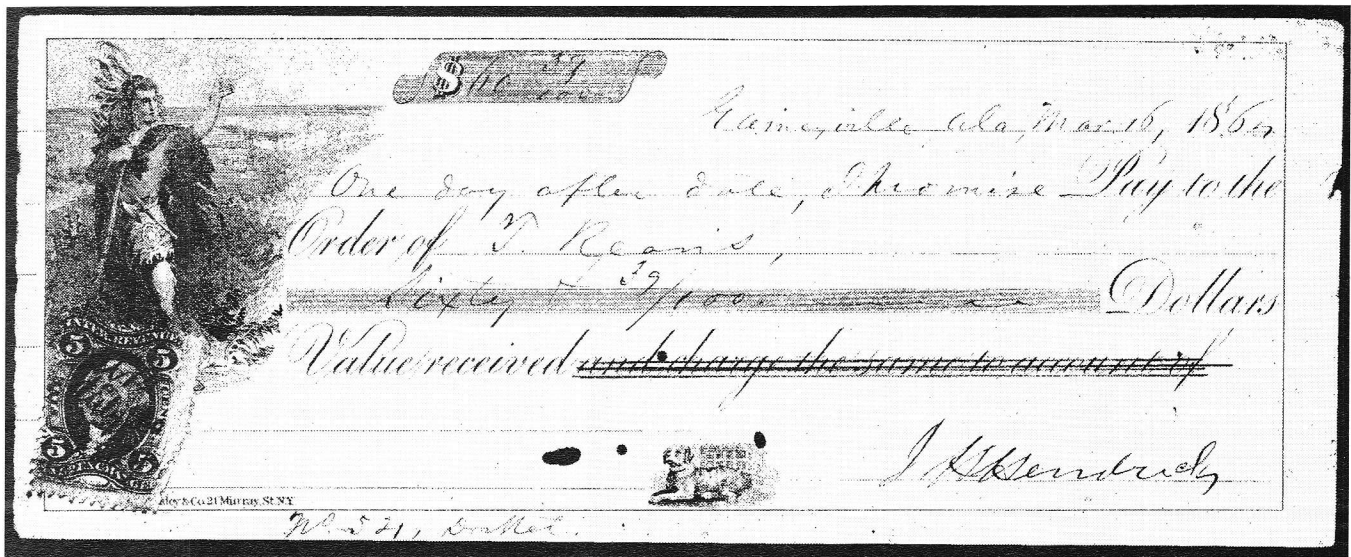 $ 60 39/100
Gainesville Ala, Mar 16, 186
One day after date, I Promise Pay to the
Order of T. Reavis,
Sixty & 39/100 Dollars
Value received and charge the same to account of
J H Hendricks
U.S.
INTER. REVENUE
5 5
FIVE CENTS
5 5
INL. EXCHANGE
& Co 21 Murray, St. N.Y.
No. 521, Docket